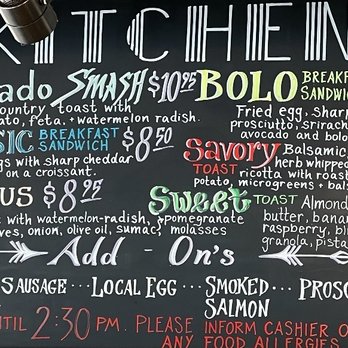 KITCHEN
ado SMASH $10.95
country toast with
ato, feta, + watermelon radish.
SIC BREAKFAST SANDWICH $8.50
gs with sharp cheddar
on a croissant.
US $8.25
with watermelon-radish,
ves, onion, olive oil, sumac,
pomegranate
molasses
BOLO BREAKF
SANDWIC
Fried egg, sharp
prosciutto, srirach
avocado and bolo
Savory TOAST
Balsamic
herb whipped
ricotta with roast
potato, microgreens + bals
Sweet TOAST
Almond
butter, banan
raspberry, bl
granola, pista
Add - On's
SAUSAGE ... LOCAL EGG ... SMOKED SALMON ... PROSC
NTIL 2:30 PM. PLEASE INFORM CASHIER O
ANY FOOD ALLERGIES